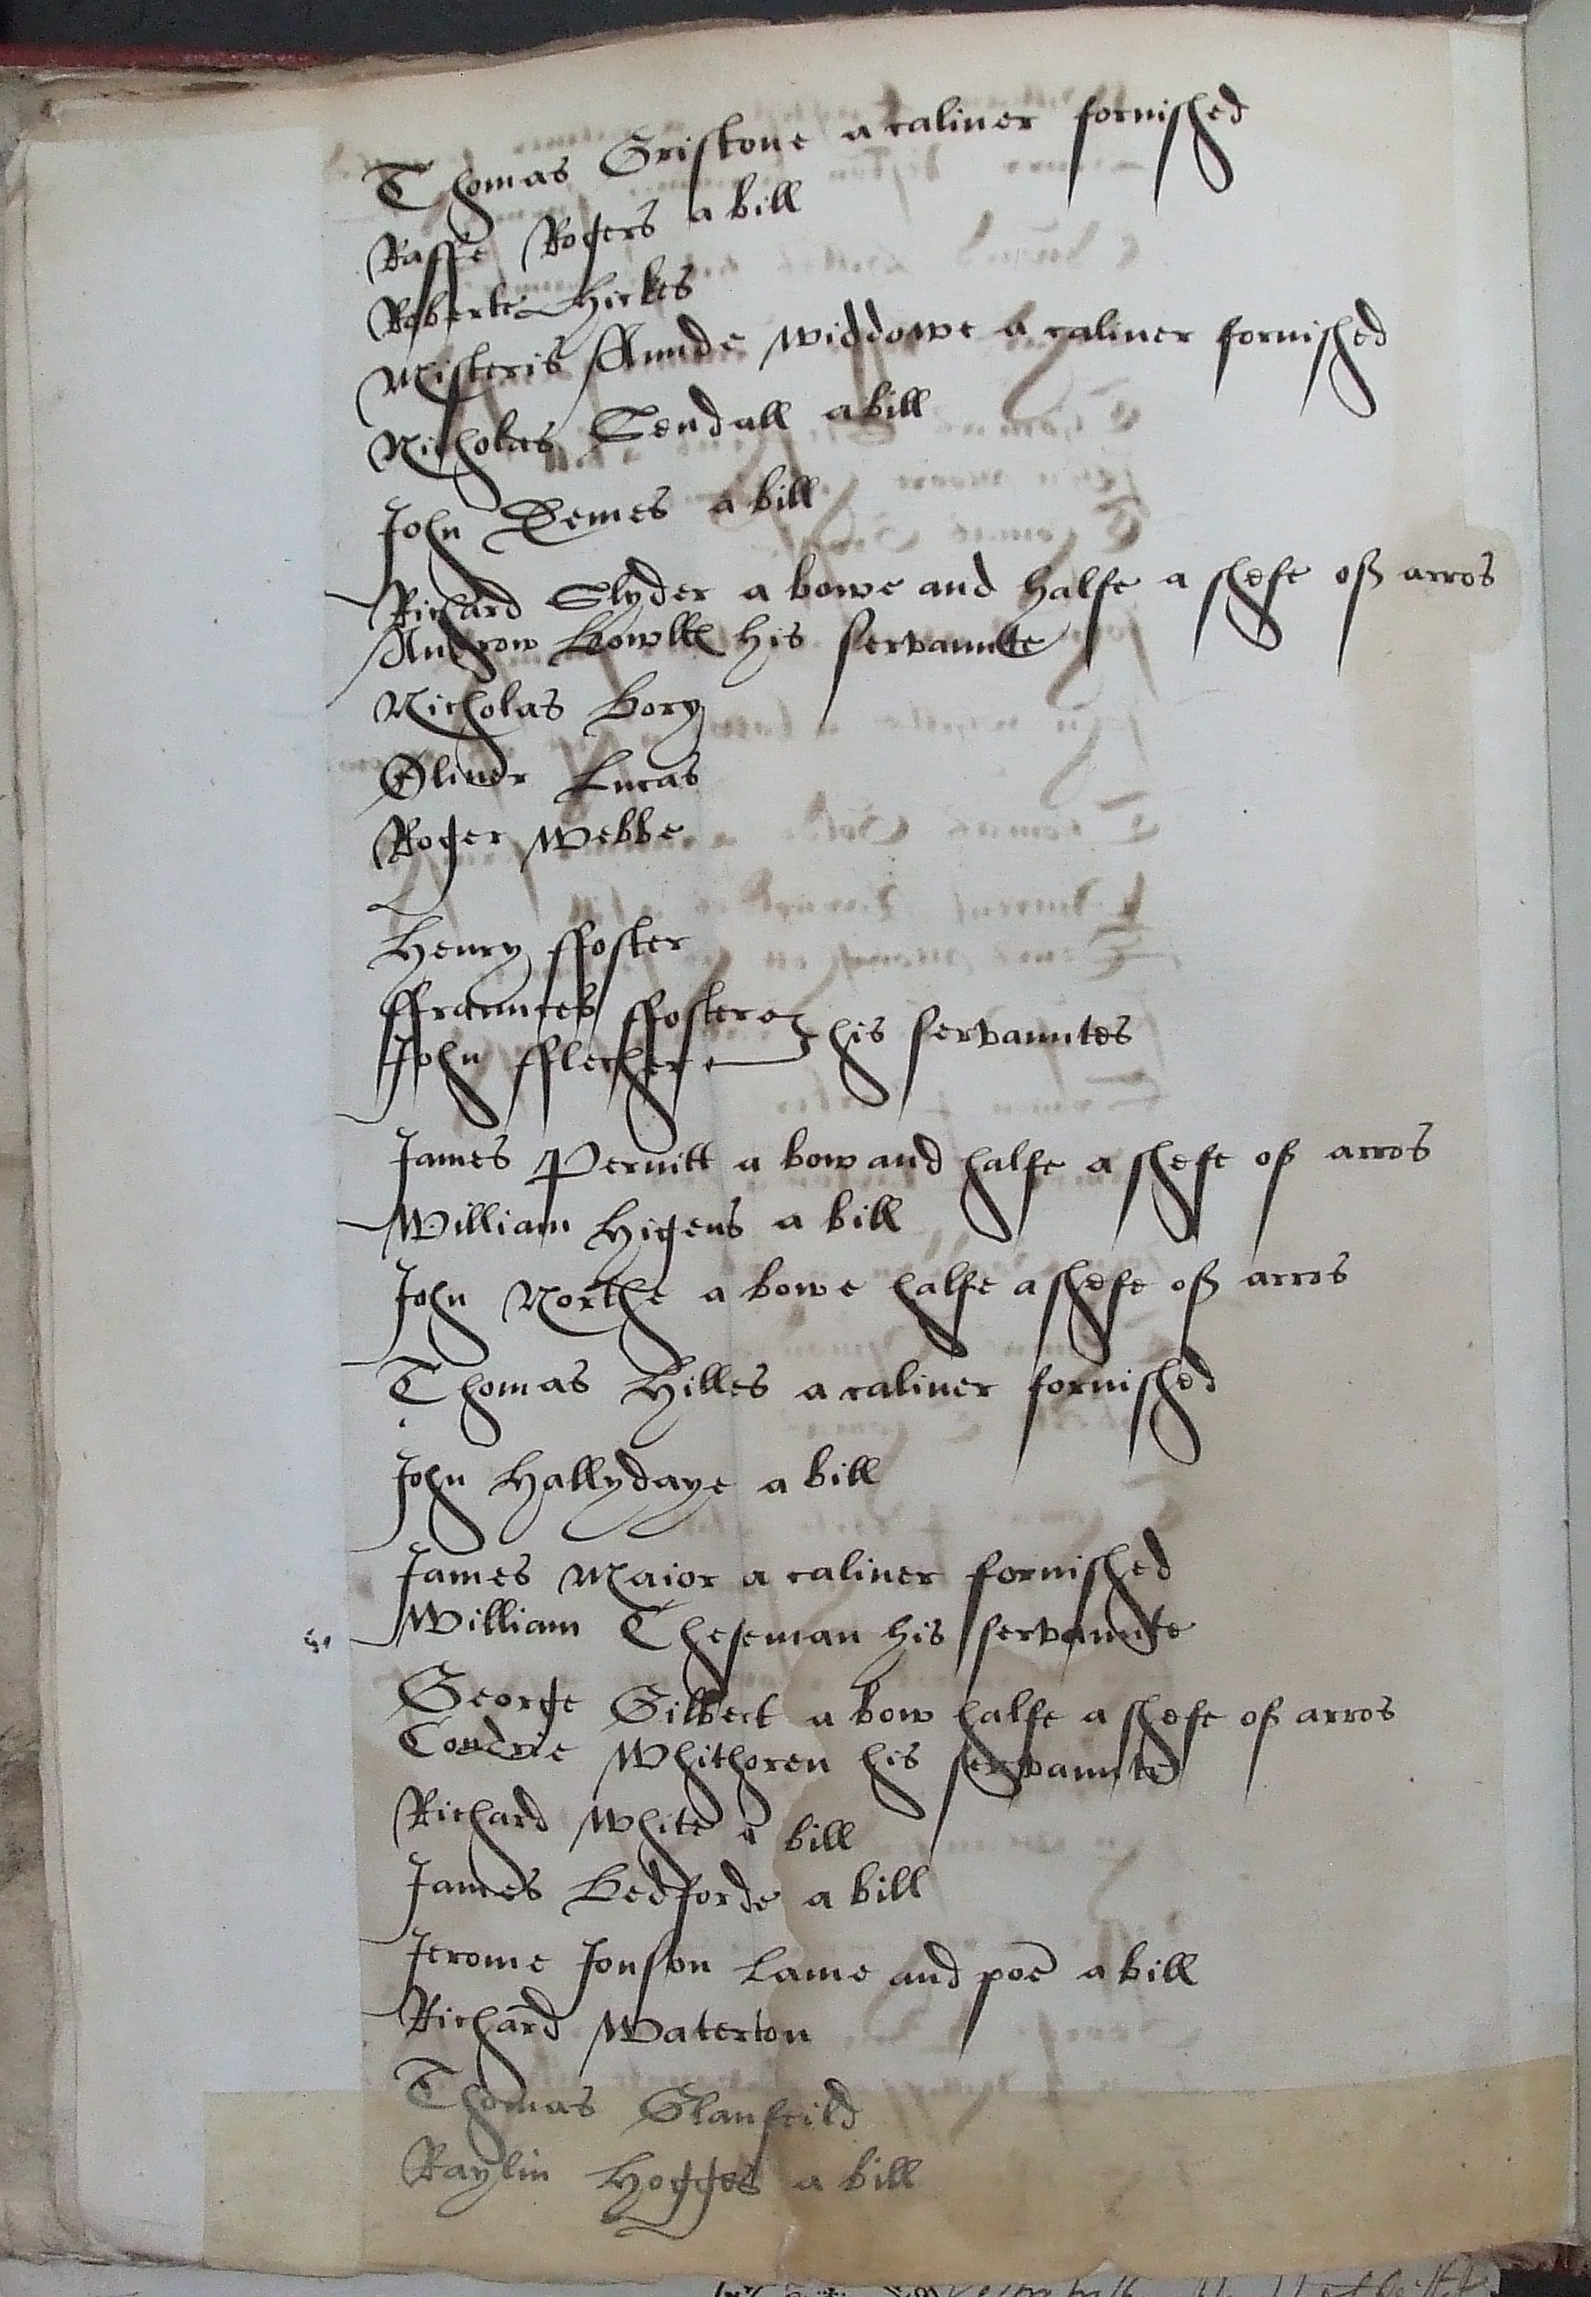 Thomas Gristone a caliver fornished
Raffe Rogers a bill
Roberte Hickes
Misteris Annde widdowe a caliver fornished
Nicholas Tendall a bill
John Demes a bill
Richard Slyder a bowe and halfe a shefe off arros
Androw Bowlle his servaunte
Nicholas Bory
Oliver Lucas
Roger Webbe
Henry ffoster
ffraunces ffoster
John fflecher his servauntes
James Pernitt a bow and halfe a shefe off arros
William Higens a bill
John Northe a bowe halfe a shefe off arros
Thomas Hilles a caliver fornished
John Hallydaye a bill
James Maior a caliver fornished
William Cheseman his servaunte
George Gilbert a bow halfe a shefe off arros
Whithoren his servaunte
Richard White a bill
James Bedforde a bill
Jerome Jonson Lame and poe a bill
Richard Waterton
Thomas Glanfeild
Raylin Hogges a bill